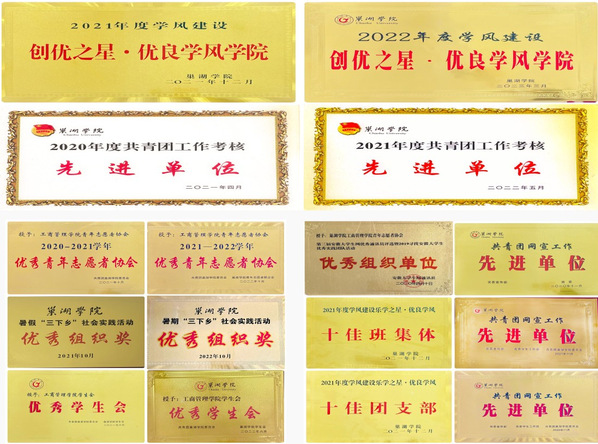 2021年度学风建设
创优之星·优良学风学院
巢湖学院
二〇二一年十二月
巢湖学院
2022年度学风建设
创优之星·优良学风学院
巢湖学院
巢湖学院
2020年度共青团工作考核
先进单位
二〇二一年四月
巢湖学院
2021年度共青团工作考核
先进单位
二〇二二年五月
授予:工商管理学院青年志愿者协会
2020-2021学年
优秀青年志愿者协会
授予:工商管理学院青年志愿者协会
2021—2022学年
优秀青年志愿者协会
优秀组织单位
巢湖学院
共青团网宣工作
先进单位
巢湖学院
暑假“三下乡”社会实践活动
优秀组织奖
2021年10月
巢湖学院
暑期“三下乡”社会实践活动
优秀组织奖
2022年10月
2021年度学风建设乐学之星·优良学风
十佳班集体
巢湖学院
二〇二一年十二月
巢湖学院
共青团网宣工作
先进单位
巢湖学院
授予:工商管理学院学生会
优秀学生会
巢湖学院
授予:工商管理学院学生会
优秀学生会
2021年度学风建设乐学之星·优良学风
十佳团支部
巢湖学院
二〇二一年十二月
巢湖学院
共青团网宣工作
先进单位